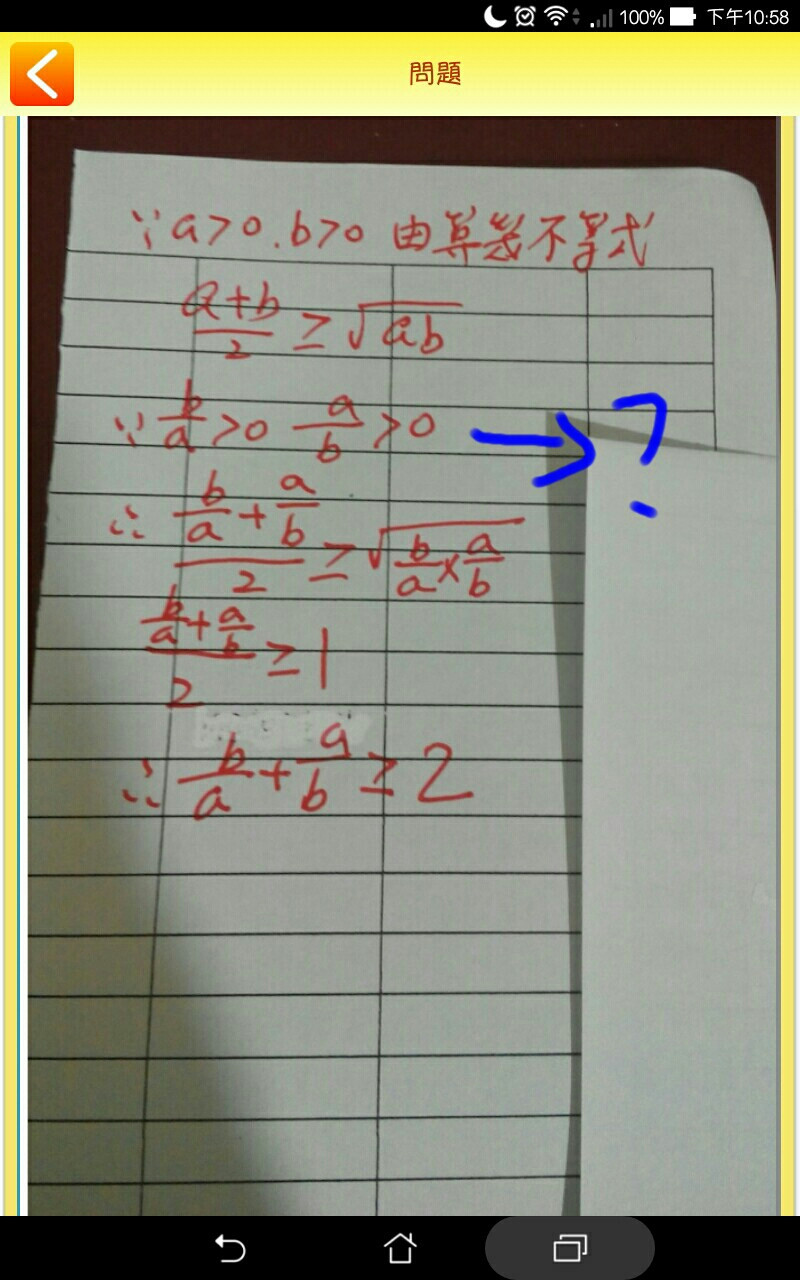 100% 下午10:58
問題
∵ a>0 . b>0 由算幾不等式
(a+b)/2 ≥ √(ab)
∵ b/a >0 a/b >0 → ?
∴ (b/a + a/b)/2 ≥ √(b/a × a/b)
(b/a + a/b)/2 ≥ 1
∴ b/a + a/b ≥ 2